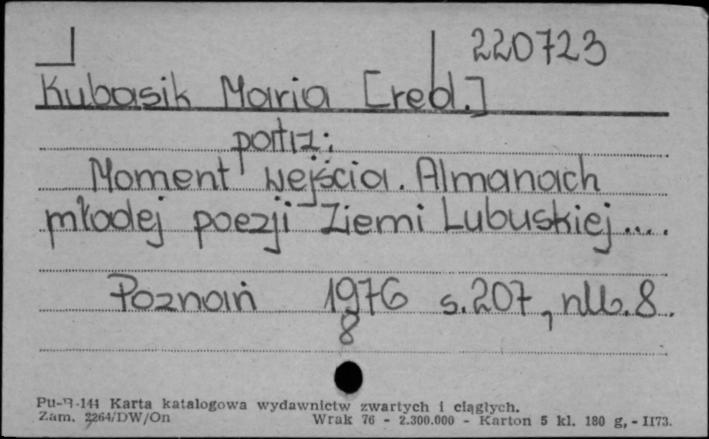 220723
Kubasik Maria [red.]
patrz:
Moment wejścia. Almanach
młodej poezji Ziemi Lubuskiej....
Poznań 1976 s. 207, nlb. 8.
8
Pu-A-144 Karta katalogowa wydawnictw zwartych i ciągłych.
Zam. 2264/DW/On Wrak 76 - 2.300.000 - Karton 5 kl. 180 g, - II73.